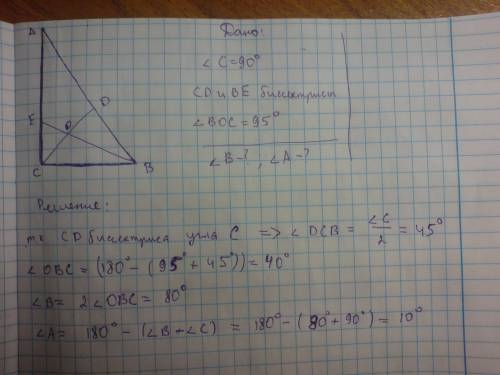 Дано:
∠C=90°
CD и BE биссектрисы
∠BOC=95°
∠B-?, ∠A-?
A
D
E
O
C
B
Решение:
т.к CD биссектриса угла C => ∠DCB = ∠C/2 = 45°
∠OBC = (180° - (95° + 45°)) = 40°
∠B= 2∠OBC = 80°
∠A= 180° - (∠B+∠C) = 180° - (80° + 90°) = 10°